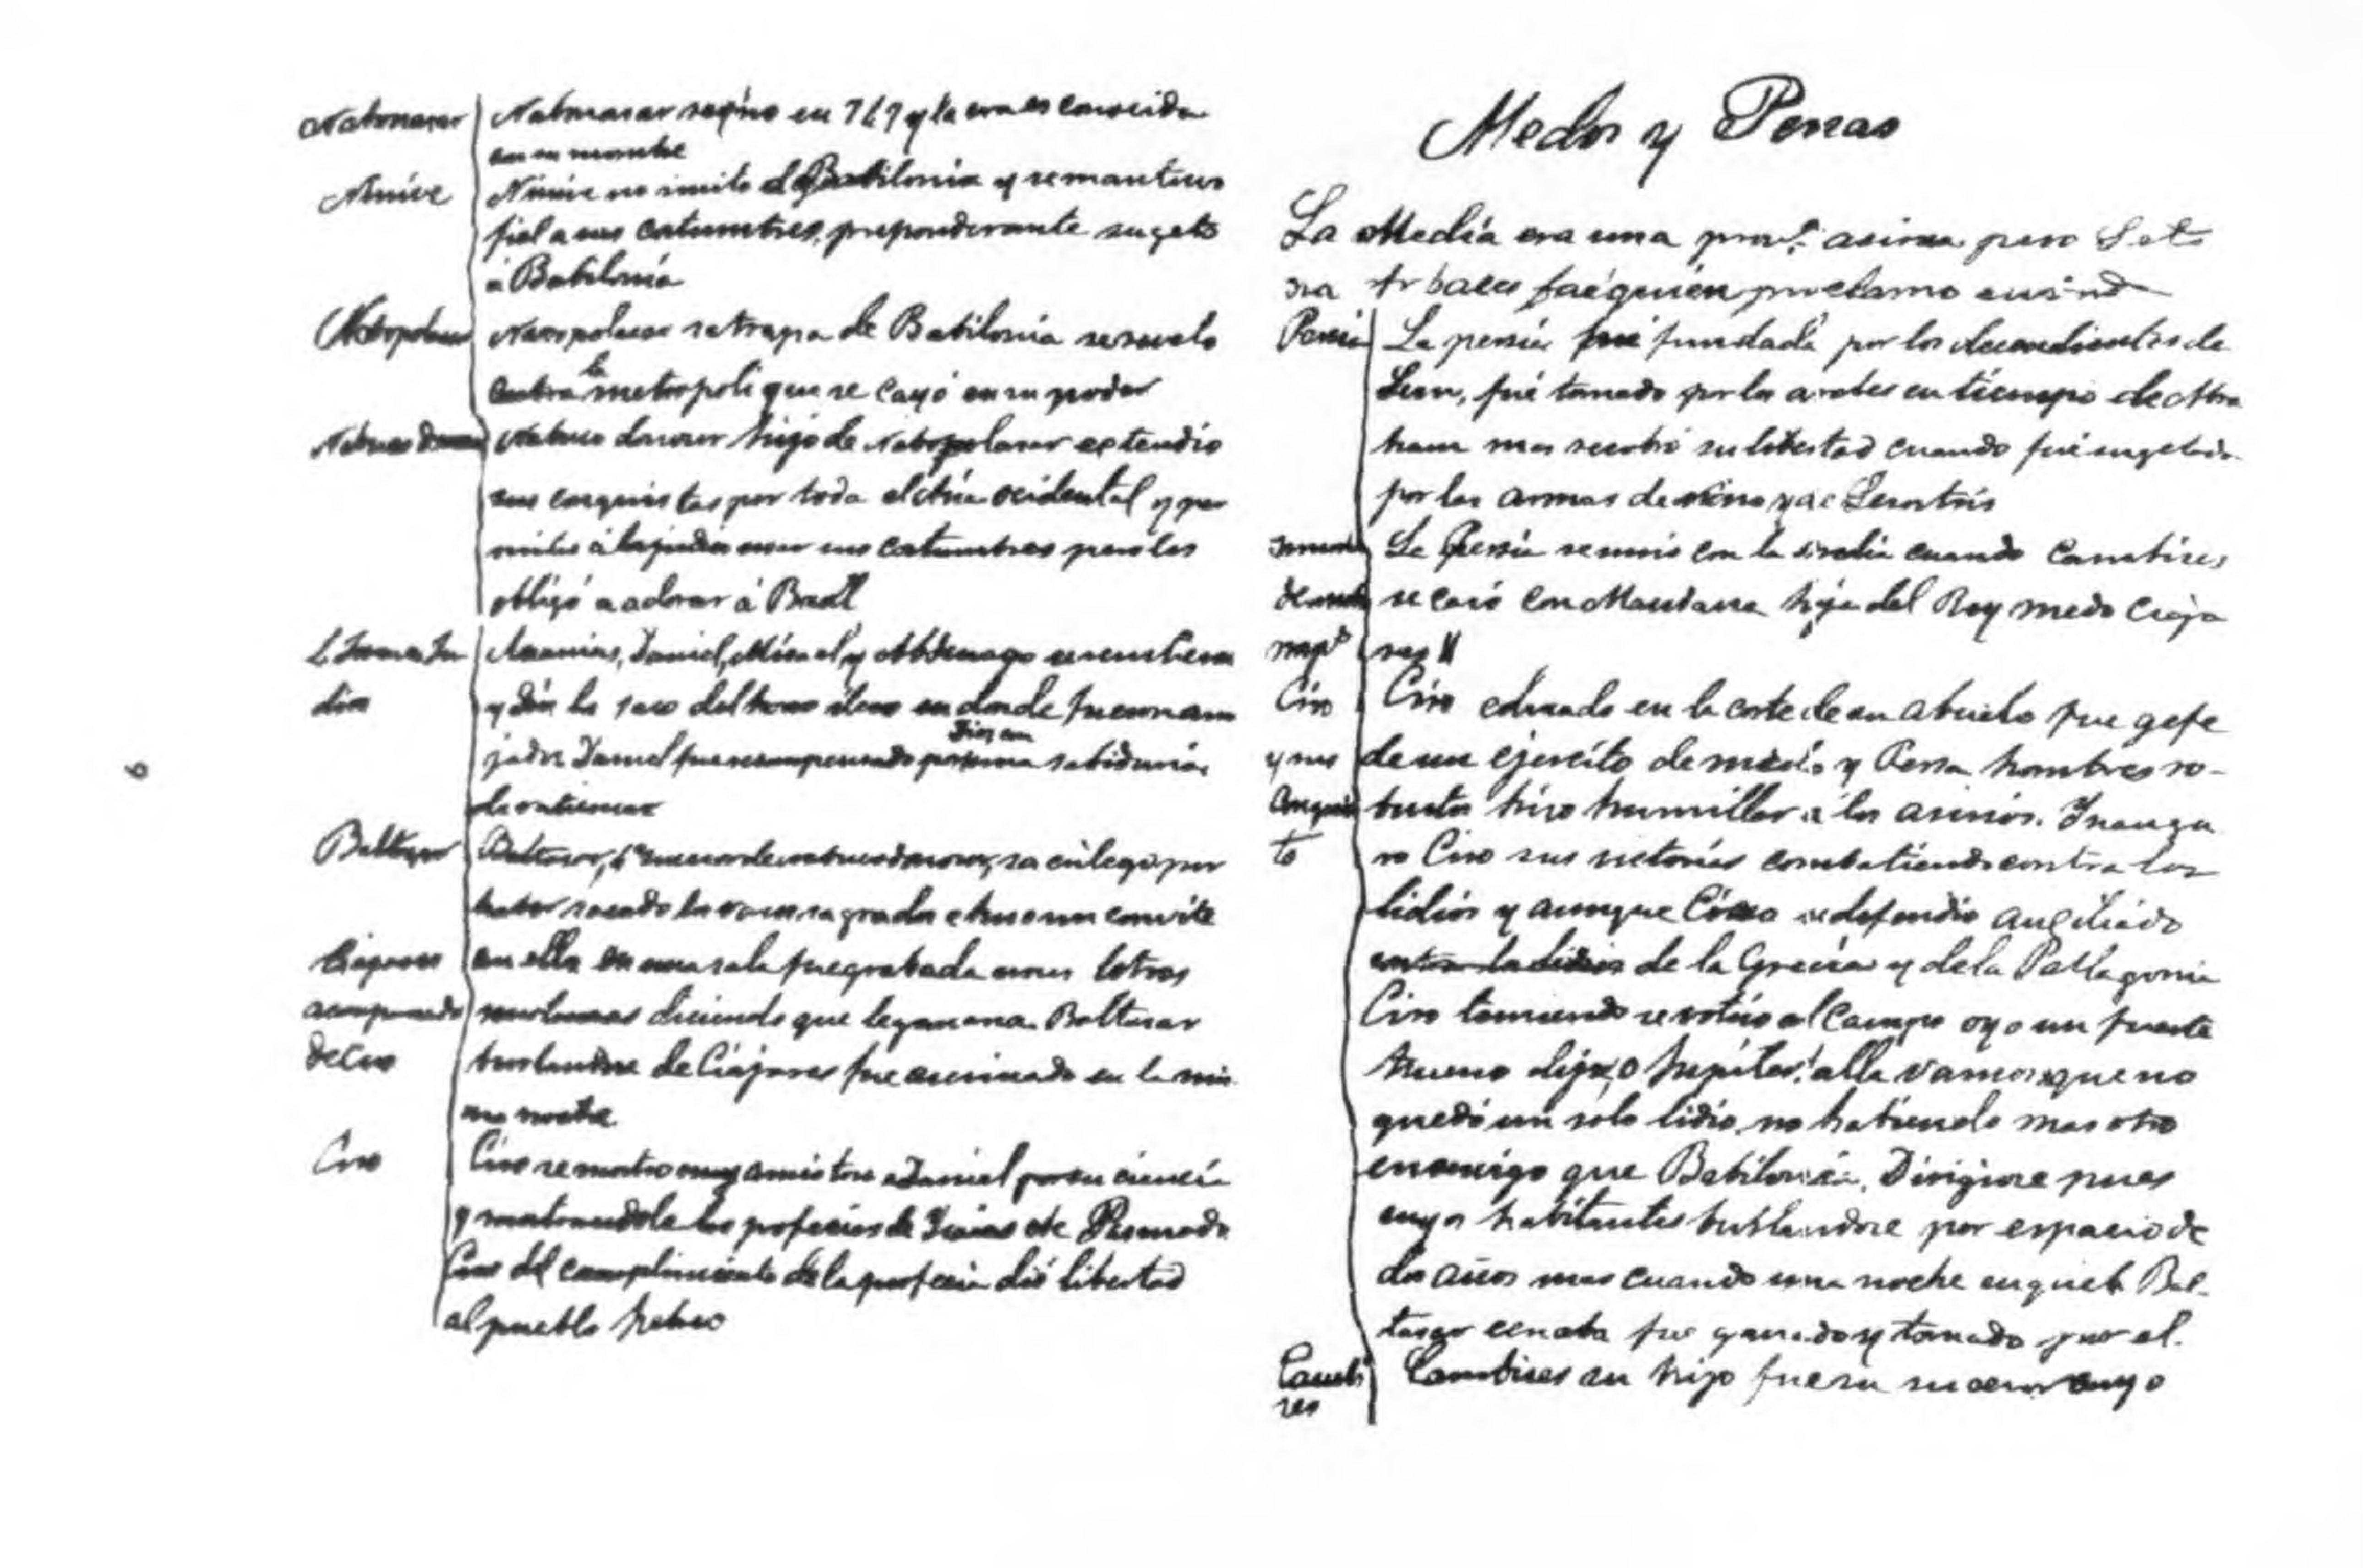 Nabonasar
Nabonasar reyno en 747 y la era es conocida
en su nombre
Ninive
Ninive no imito el de Babilonia y se mantuvo
fiel a sus costumbres, preponderante sugeto
á Babilonia
Nabopolasar
satrapa de Babilonia se revelo
contra la metropoli que se cayó en su poder
hijo de Nabopolasar extendio
sus conquistas por toda el Asia ocidental y per
mitio á los judios usar sus costumbres pero les
obligó a adorar á Baal
dia
Ananias, Daniel, Misael, y Abdenago
y Dios los saco del horno ileso en donde fueron arro
jados Daniel fue recompensado por su sabiduria
Baltasar
Baltasar,
haber sacado los vasos sagrados e hizo un convite
Ciajares
en ella en una sala fue grabada unas letras
acompañado
diciendo que le ganaran. Baltasar
de Ciro
burlandose de Ciajares fue asesinado en la mis
ma noche
Ciro
Ciro se mostro muy amistoso a Daniel por su ciencia
y mostrandole las profecias de Isaias
Ciro del cumplimiento de la profecia dió libertad
al pueblo hebreo
6
Medos y Persas
La Media era una prov.ª asiria pero
fué quien proclamo
Persia
La persia fué fundada por los decendientes de
Sem, fué tomado por los arabes en tiempo de Abra
ham mas recobró su libertad cuando fué sugetada
por las armas de Nino y de Sesostris
La Persia se unió con la Media cuando Cambises
se casó con Mandana hija del Rey medo Ciaja
res II
Ciro
Ciro educado en la corte de su abuelo fue gefe
y sus
de un ejercito de medo y Persa hombres ro-
Conquis
bustos hizo humillar á los asirios. Inaugu
ta
ro Ciro sus victorias combatiendo contra los
lidios y aunque Creso se defendio auciliado
contra los lidios de la Grecia y de la Paflagonia
Ciro temiendo se volvio al campo oyo un fuerte
trueno dijo, o Jupiter! alla vamos que no
quedó un sólo lidio, no habiendo mas otro
enemigo que Babilonia. Dirigiose pues
cuyos habitantes burlandose por espacio de
dos años mas cuando una noche en que Bal-
tasar cenaba fue ganado y tomado por el.
Cambi
Cambises su hijo fue su sucesor cuyo
ses